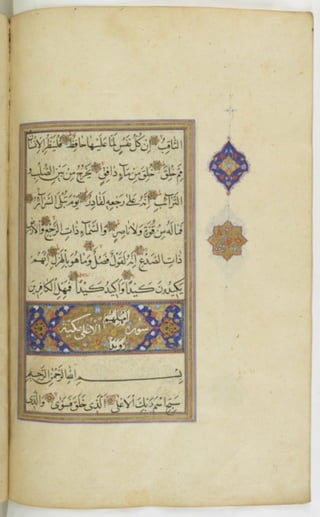 الثَّاقِبُ إِن كُلُّ نَفْسٍ لَمَّا عَلَيْهَا حَافِظٌ فَلْيَنظُرِ الْإِنسَانُ
مِمَّ خُلِقَ خُلِقَ مِن مَاءٍ دَافِقٍ يَخْرُجُ مِن بَيْنِ الصُّلْبِ وَ
التَّرَائِبِ إِنَّهُ عَلَى رَجْعِهِ لَقَادِرٌ يَوْمَ تُبْلَى السَّرَائِرُ
فَمَا لَهُ مِن قُوَّةٍ وَلَا نَاصِرٍ وَالسَّمَاءِ ذَاتِ الرَّجْعِ وَالْأَرْضِ
ذَاتِ الصَّدْعِ إِنَّهُ لَقَوْلٌ فَصْلٌ وَمَا هُوَ بِالْهَزْلِ إِنَّهُمْ
يَكِيدُونَ كَيْدًا وَأَكِيدُ كَيْدًا فَمَهِّلِ الْكَافِرِينَ
سورة الاعلى مكية
بِسْمِ اللَّهِ الرَّحْمَنِ الرَّحِيمِ
سَبِّحِ اسْمَ رَبِّكَ الْأَعْلَى الَّذِي خَلَقَ فَسَوَّى وَالَّذِي